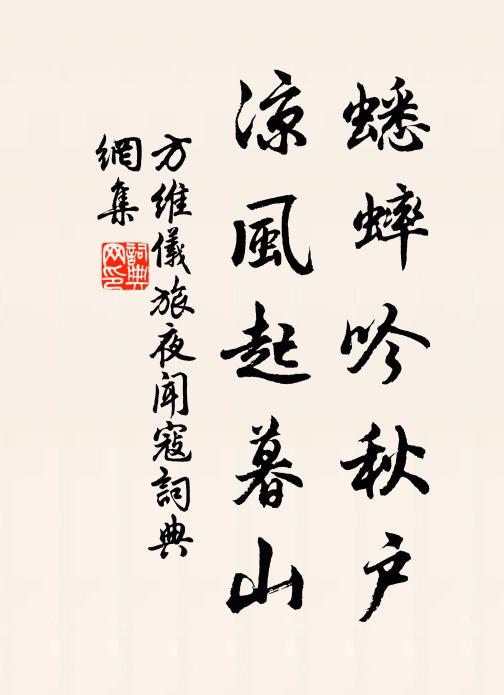 蟋蟀吟秋户
涼風起暮山
方維儀旅夜聞寇詞典
網集
詞典
网印